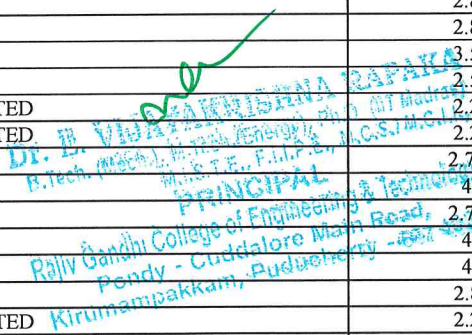 2.8
2.8
3.
TED
2.
TED
2.
Dr. B. VIJAYAKRISHNA RAPAKA
B.Tech. (Mech.), M.Tech. (Energy), Ph.D. (IIT Madras)
M.I.S.T.E., F.I.I.P.E., M.C.S.I.
2.7
PRINCIPAL
4
2.7
Rajiv Gandhi College of Engineering & Technology
4
Pondy - Cuddalore Main Road,
4
Kirumampakkam, Puducherry -
2.
TED
2.